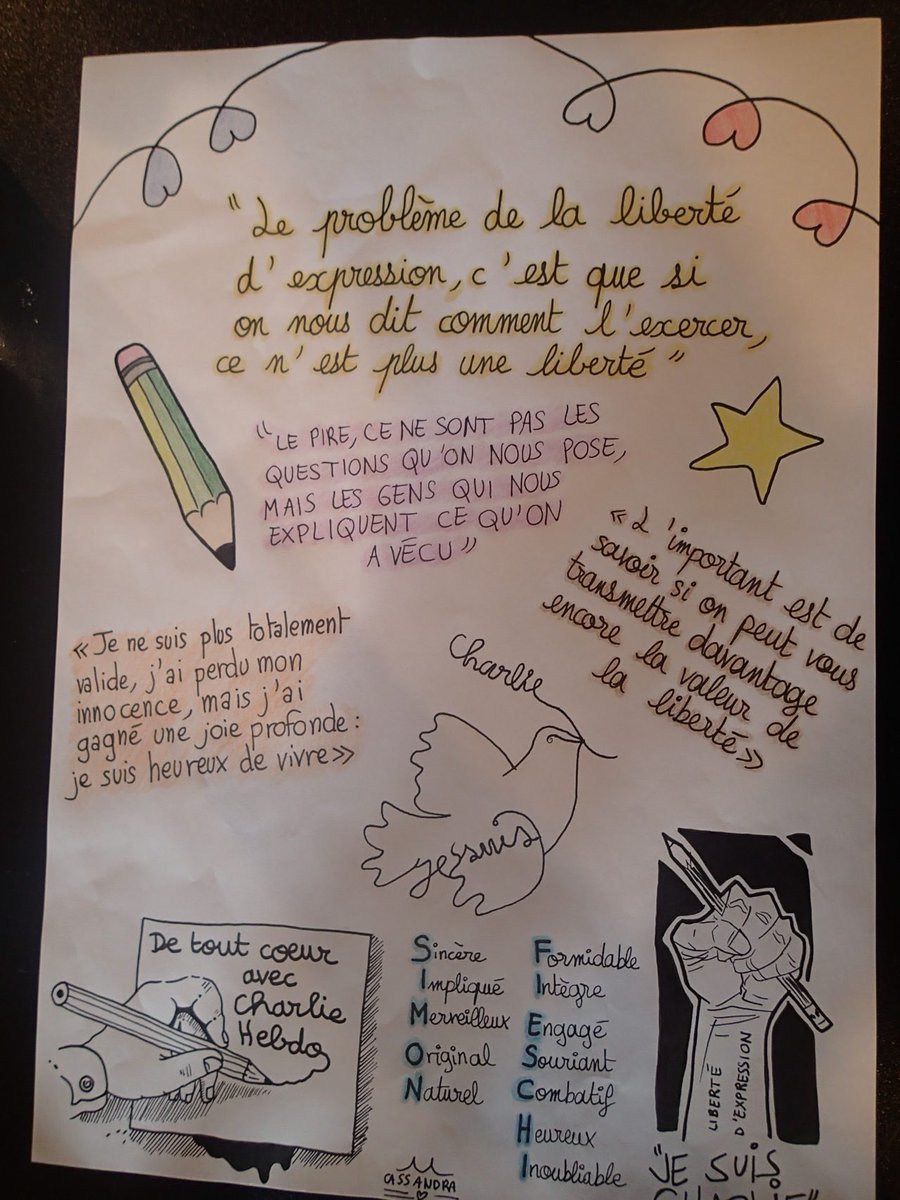 "Le problème de la liberté
d'expression, c'est que si
on nous dit comment l'exercer,
ce n'est plus une liberté"
"LE PIRE, CE NE SONT PAS LES
QUESTIONS QU'ON NOUS POSE,
MAIS LES GENS QUI NOUS
EXPLIQUENT CE QU'ON
A VÉCU"
« L'important est de
savoir si on peut vous
transmettre davantage
encore la valeur de
la liberté »
« Je ne suis plus totalement
valide, j'ai perdu mon
innocence, mais j'ai
gagné une joie profonde :
je suis heureux de vivre »
Charlie
je suis
De tout coeur
avec
Charlie
Hebdo
Sincère
Impliqué
Merveilleux
Original
Naturel
Formidable
Intègre
Engagé
Souriant
Combatif
Heureux
Inoubliable
LIBERTÉ
D'EXPRESSION
"JE SUIS
CHARLIE"
CASSANDRA